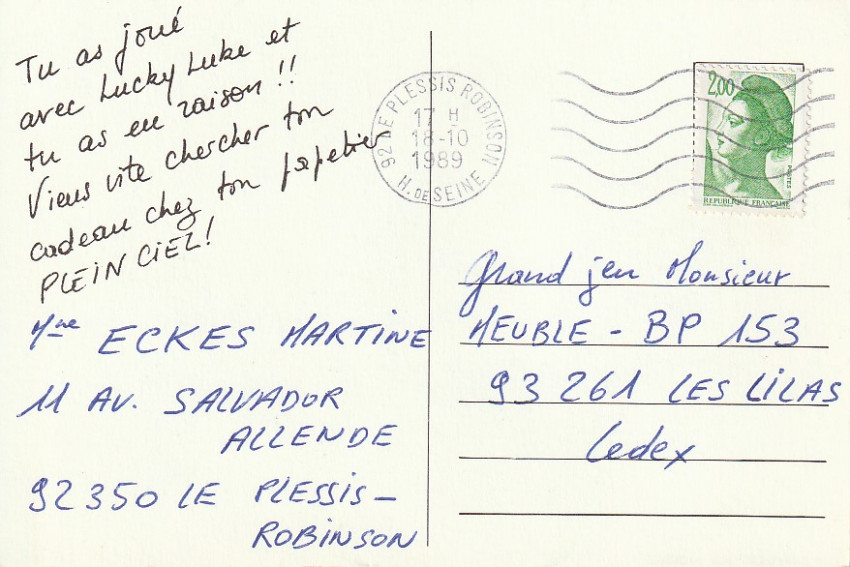 Tu as joué
avec Lucky Luke et
tu as eu raison !!
Viens vite chercher ton
cadeau chez ton papetier
PLEIN CIEL!
Mme ECKES MARTINE
11 AV. SALVADOR
ALLENDE
92350 LE PLESSIS-
ROBINSON
92 LE PLESSIS ROBINSON
17 H
18-10
1989
H. DE SEINE
2,00
POSTES
REPUBLIQUE FRANÇAISE
Grand jeu Monsieur
MEUBLE - BP 153
93 261 LES LILAS
Cedex